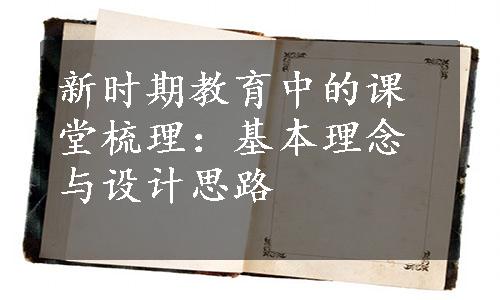 新时期教育中的课
堂梳理：基本理念
与设计思路